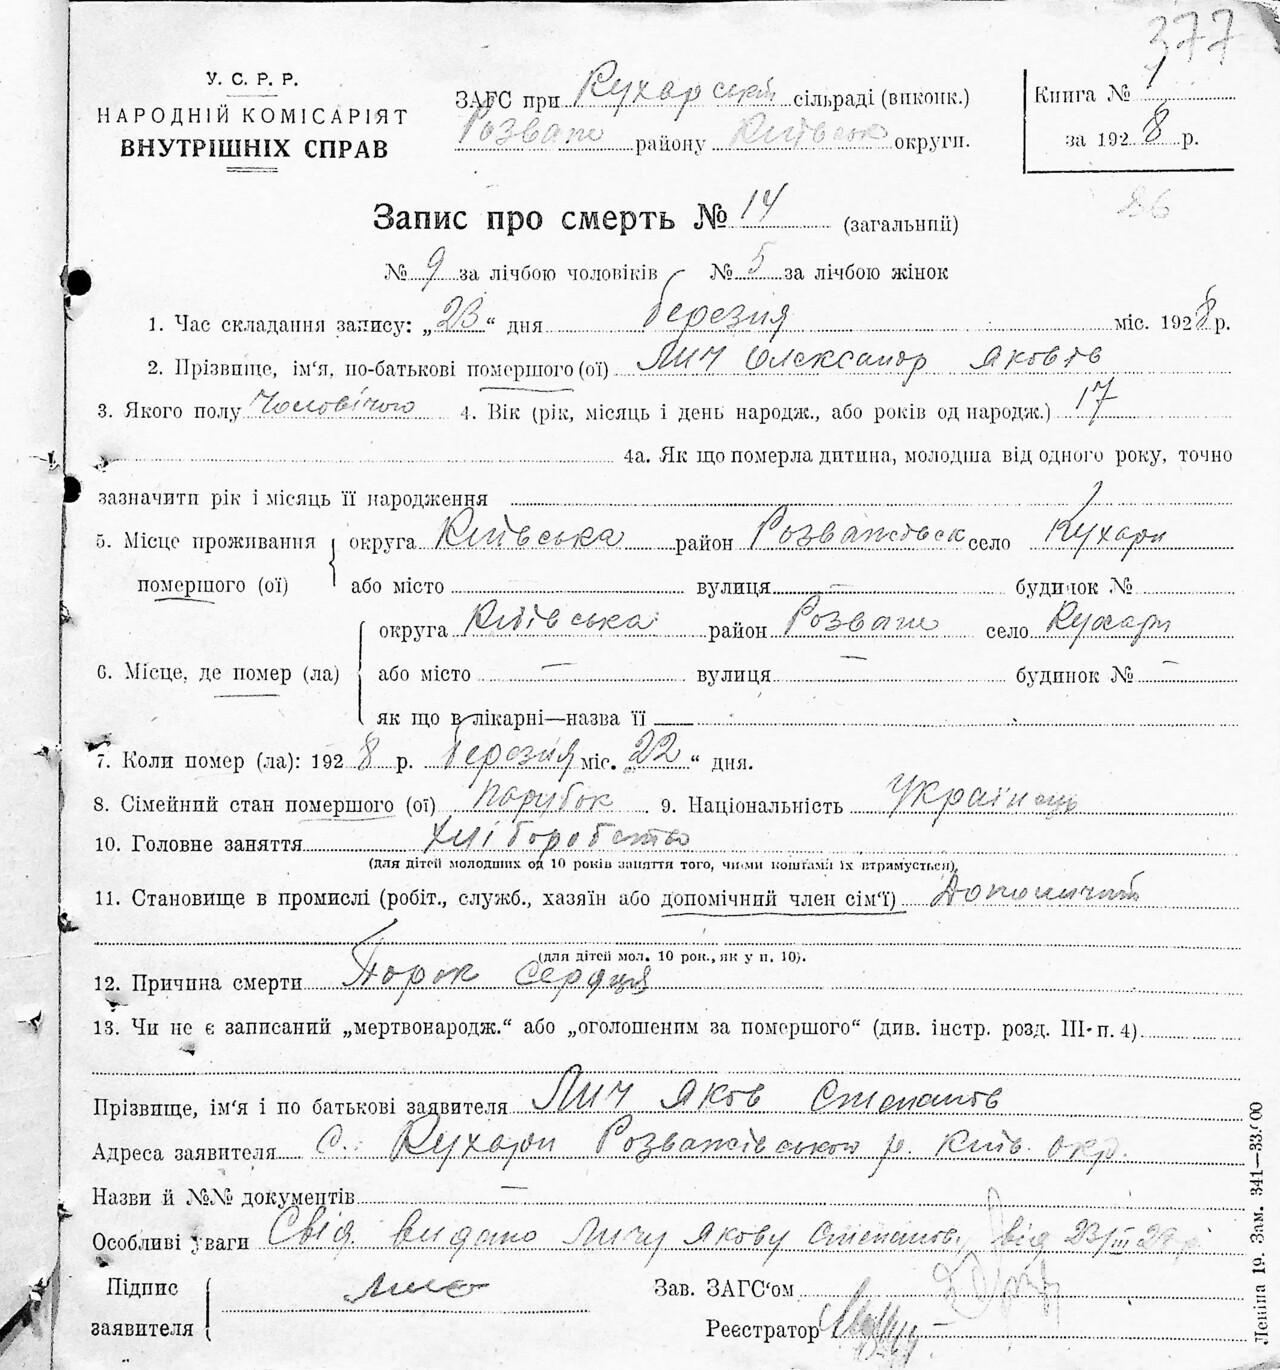 377
У. С. Р. Р.
НАРОДНІЙ КОМІСАРІЯТ
ВНУТРІШНІХ СПРАВ
ЗАГС при Кухарській сільраді (виконк.)
Розваж району Київськ округи.
Книга № 1
за 1928 р.
86
Запис про смерть № 14 (загальний)
№ 9 за лічбою чоловіків № 5 за лічбою жінок
1. Час складання запису: „23“ дня березня міс. 1928 р.
2. Прізвище, ім'я, по-батькові помершого (ої) Лич Олександр Яковів
3. Якого полу Чоловічого 4. Вік (рік, місяць і день народж., або років од народж.) 17
4а. Як що померла дитина, молодша від одного року, точно
зазначити рік і місяць її народження
5. Місце проживання помершого (ої) округа Київська район Розважівськ село Кухари
або місто вулиця — будинок №
6. Місце, де помер (ла) округа Київська район Розваж село Кухари
або місто — вулиця — будинок № —
як що в лікарні—назва її —
7. Коли помер (ла): 1928 р. березня міс. 22“ дня.
8. Сімейний стан помершого (ої) парубок 9. Національність Українець
10. Головне заняття хліборобство
(для дітей молодших од 10 років заняття того, чиїми коштами їх втримується)
11. Становище в промислі (робіт., служб., хазяїн або допомічний член сім'ї) Допомічний
(для дітей мол. 10 рок., як у п. 10).
12. Причина смерти Порок сердця
13. Чи не є записаний „мертвонародж.“ або „оголошеним за помершого“ (див. інстр. розд. III-п. 4)
Прізвище, ім'я і по батькові заявителя Лич Яков Степанов
Адреса заявителя с. Кухари Розважівського р. Київ. окр.
Назви й №№ документів —
Особливі уваги Свід. видано Личу Якову Степанов. від 23/III 28 р
Підпис заявителя Лич
Зав. ЗАГС'ом
Реєстратор
Леніна 19. Зам. 341—33.000